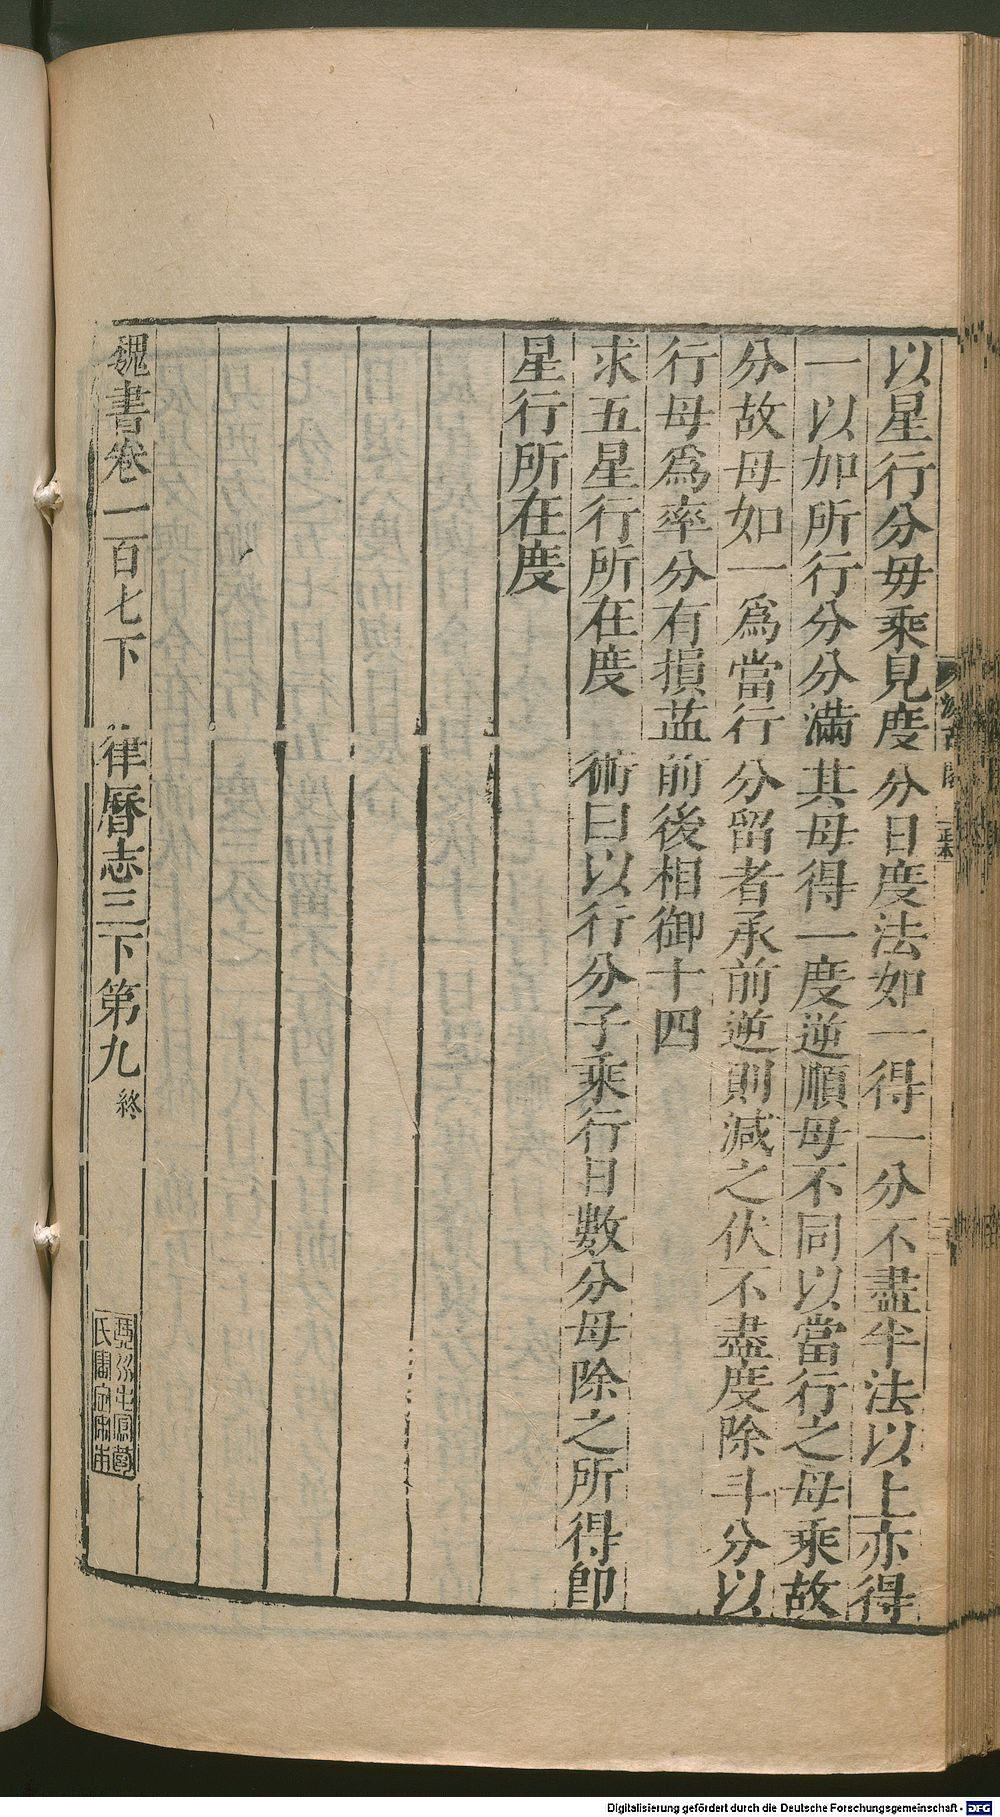 以星行分毋乘見度分日度法如一得一分不盡半法以上亦得
一以加所行分分滿其母得一度逆順母不同以當行之母乘故
分故母如一爲當行分留者承前逆則減之伏不盡度除斗分以
行母爲率分有損益前後相御十四
求五星行所在度　術曰以行分子乘行日數分母除之所得卽
星行所在度
魏書卷一百七下　律曆志三下第九終
Digitalisierung gefördert durch die Deutsche Forschungsgemeinschaft - DFG